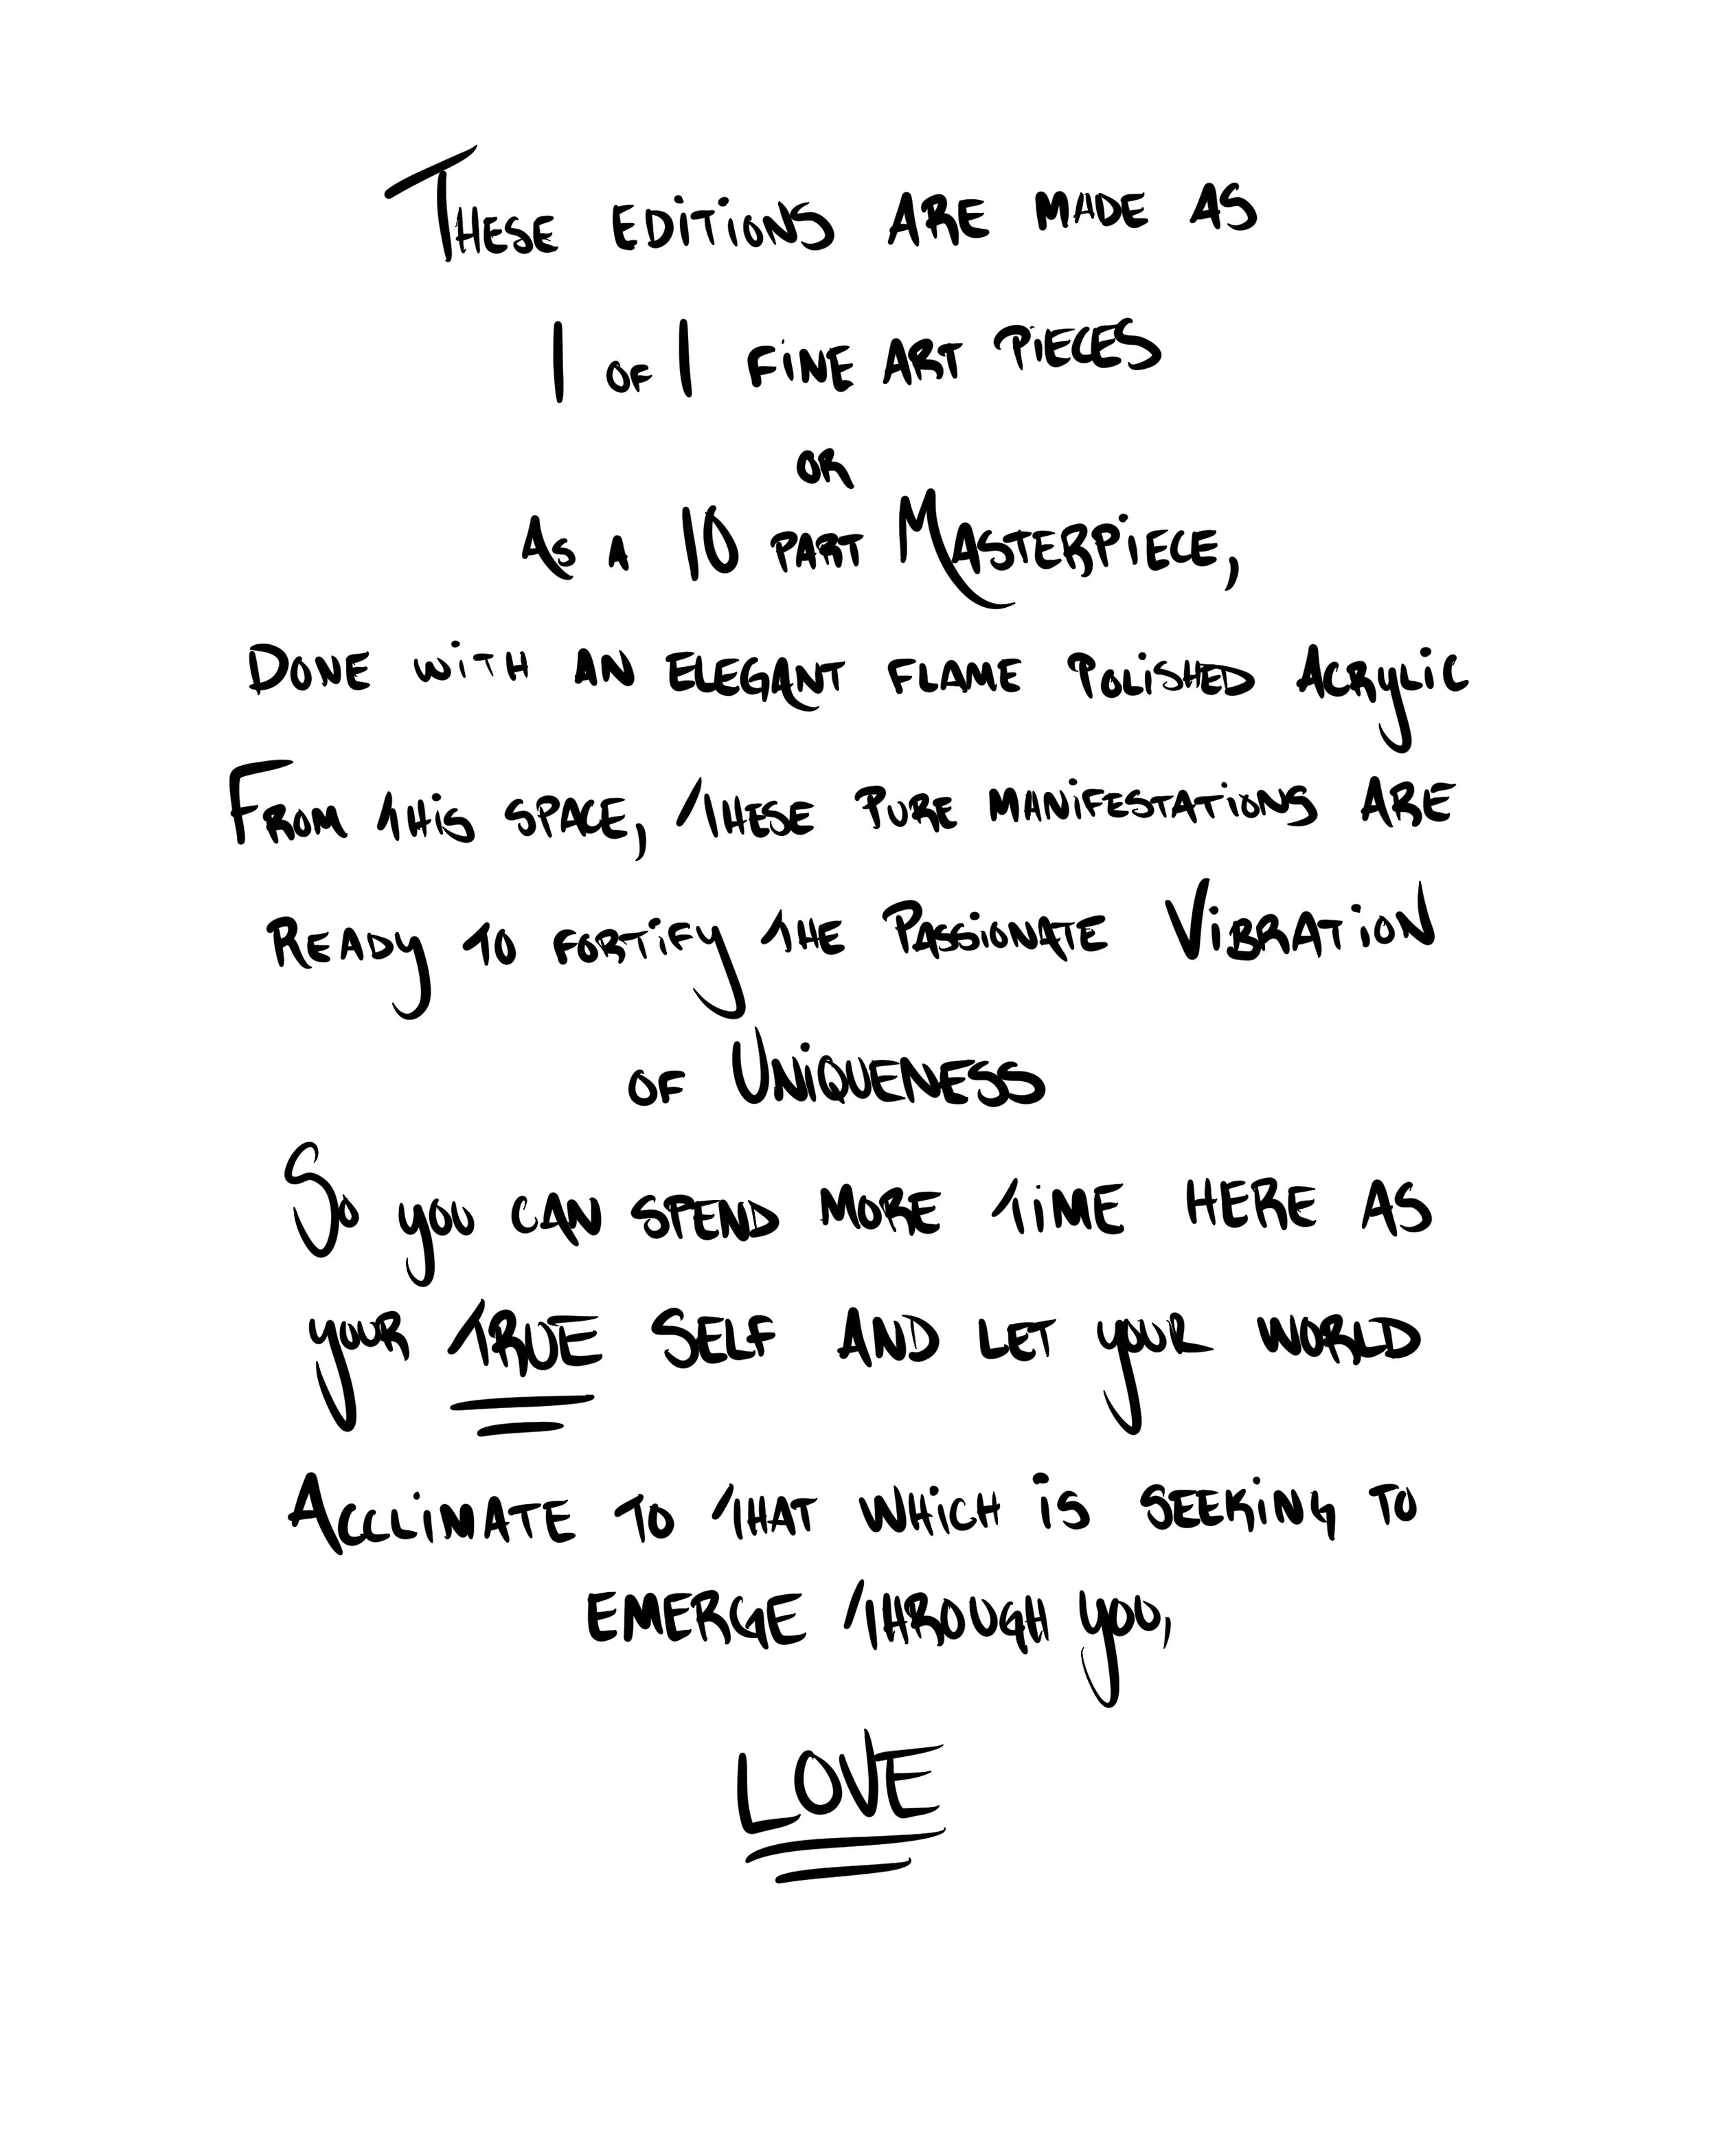 These editions are made as
1 of 1 fine art pieces
or
As a 10 part Masterpiece,
Done with an elegant flame polished Acrylic
From this space, these pure manifestations are
ready to fortify the Passionate Vibration
of Uniqueness
So you can spend more time here as
your TRUE self and let your world
Acclimate to that which is seeking to
emerge through you,
LOVE